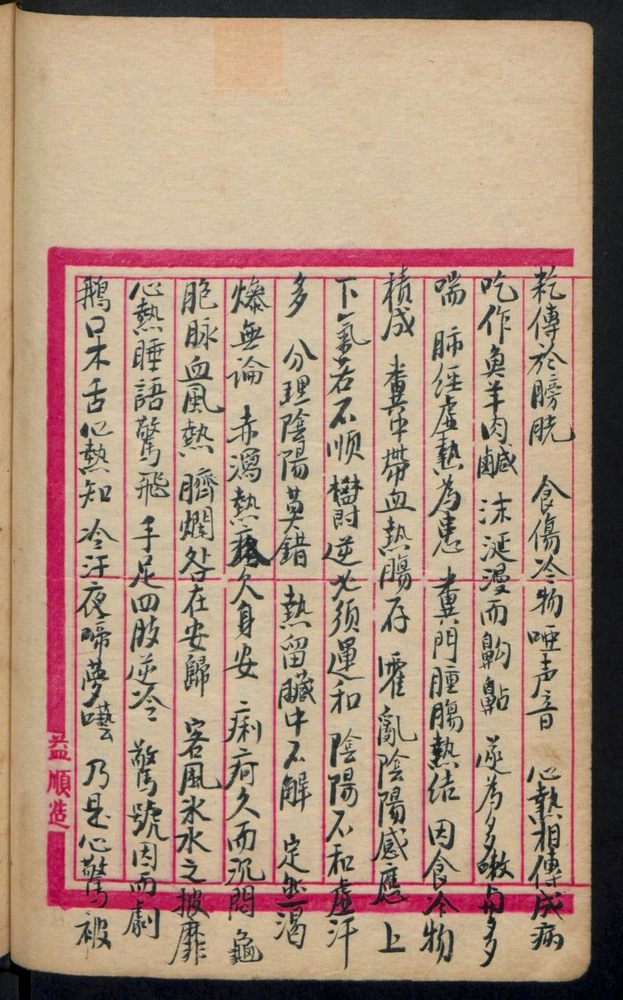 乾傳於膀胱　食傷冷物啞声音　心熱相傳成病
吃作魚羊肉鹹　沫涎漫而齁䶎　遂為多嗽多
喘　肺經虛熱為患　糞門腫腸熱结　因食冷物
積成　糞中帶血熱腸存　霍亂陰陽感應　上
下氣若不順　欝逆必須運和　陰陽不和虛汗
多　分理陰陽莫錯　熱留臟中不解　定然渴
燥無論　赤瀉熱久身安　痢疴久而沉悶　龜
胞脉血風熱　臍爛咎在安歸　客風氷水之披靡
心熱睡語驚飛　手足四肢逆冷　驚號因而劇
鵝口木舌心熱知　冷汗夜啼夢囈　乃是心驚被
益順造